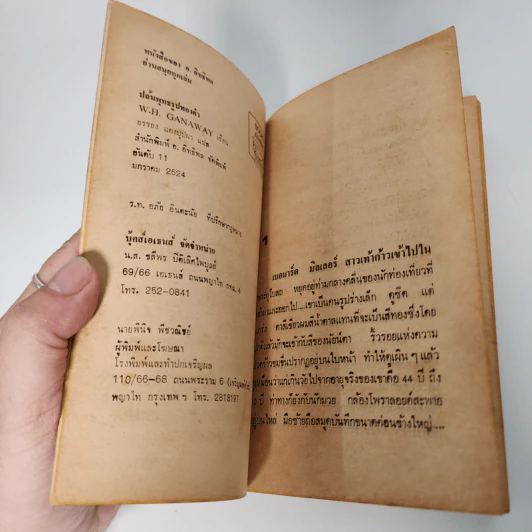 หนังสือของ อ. อิทธิพล
อ่านสนุกทุกเล่ม
ปล้นพุทธรูปทองคำ
W.H. GANAWAY เขียน
แปล
สำนักพิมพ์ อ. อิทธิพล จัดพิมพ์
อันดับ 11
มกราคม 2524
ร.ท. อภัย อินตะนัย ที่ปรึกษากฎหมาย
บุ้คส์เอเธนส์ จัดจำหน่าย
น.ส. ชลีพร ปิติเลิศไพบูลย์
69/66 เอเธนส์ ถนนพญาไท กทม. 4
โทร. 252-0841
นายพินิจ พีชวณิชย์
ผู้พิมพ์และโฆษณา
โรงพิมพ์และทำปกเจริญผล
110/66-68 ถนนพระราม 6
พญาไท กรุงเทพ ฯ โทร. 2818197
๑
เบอนาร์ด มิลเลอร์ สาวเท้าก้าวเข้าไปใน
หยุดอยู่ท่ามกลางคลื่นของนักท่องเที่ยวที่
เขาเป็นคนรูปร่างเล็ก ดูซีด แต่
ผมสีน้ำตาลแทนที่จะเป็นสีทองซึ่งโดย
แล้วมักจะเข้ากับสีของนัยน์ตา ริ้วรอยแห่งความ
ปรากฏอยู่บนใบหน้า ทำให้ดูเผิน ๆ แล้ว
เหมือนว่าแก่เกินวัยไปจากอายุจริงของเขาคือ 44 ปี ถึง
ปี ท่าทางก็ยังกับนักมวย กล้องโพราลอยด์สะพาย
บนไหล่ มือซ้ายถือสมุดบันทึกขนาดค่อนข้างใหญ่....